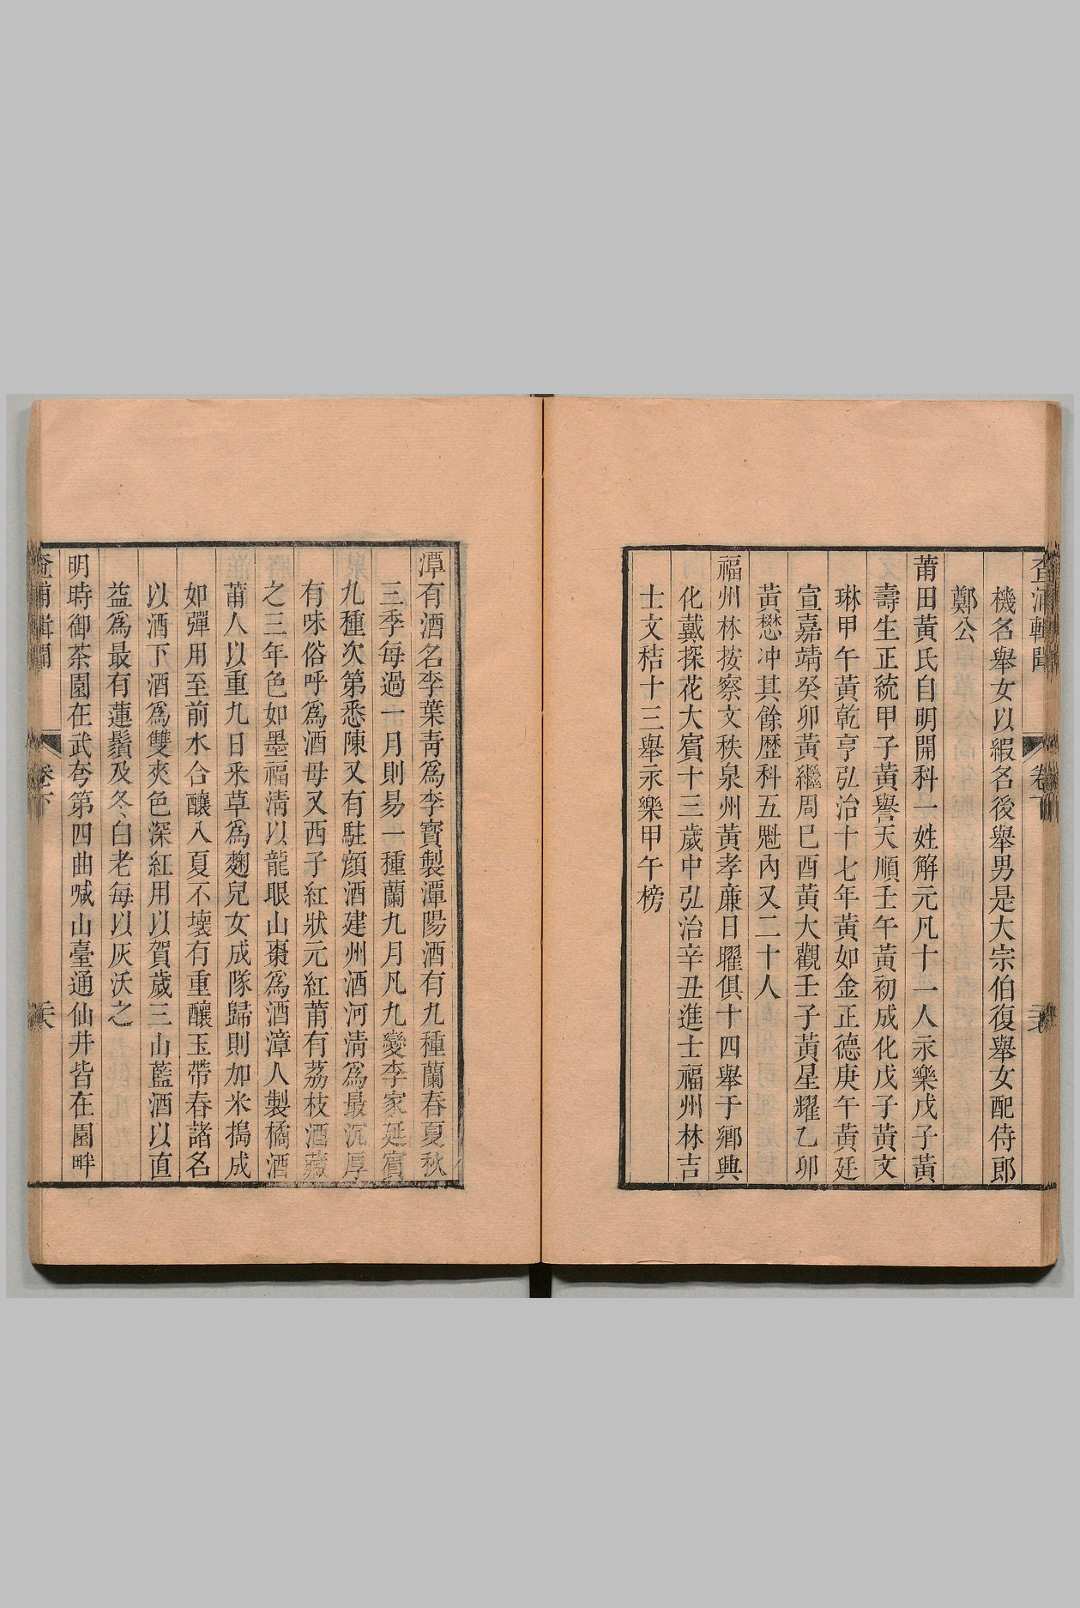 查浦輯聞
卷下
機名舉女以緞名後舉男是大宗伯復舉女配侍郎
鄭公
莆田黃氏自明開科一姓解元凡十一人永樂戊子黃
壽生正統甲子黃譽天順壬午黃初成化戊子黃文
琳甲午黃乾亨弘治十七年黃如金正德庚午黃廷
宣嘉靖癸卯黃繼周巳酉黃大觀壬子黃星耀乙卯
黃懋冲其餘歴科五魁內又二十人
福州林按察文秩泉州黃孝廉日曜俱十四舉于鄉興
化戴探花大賓十三歲中弘治辛丑進士福州林吉
士文秸十三舉永樂甲午榜
潭有酒名李葉青為李寳製潭陽酒有九種蘭春夏秋
三季每過一月則易一種蘭九月凡九變李家延賓
九種次第悉陳又有駐顔酒建州酒河清為最沉厚
有味俗呼為酒母又西子紅狀元紅莆有荔枝酒藏
之三年色如墨福清以龍眼山棗為酒漳人製橘酒
莆人以重九日采草為麴兒女成隊歸則加米搗成
如彈用至前水合釀入夏不壞有重釀玉帶春諸名
以酒下酒為雙夾色深紅用以賀歲三山藍酒以直
益為最有蓮鬚及冬白老每以灰沃之
明時御茶園在武夸第四曲喊山臺通仙井皆在園畔
查浦輯聞
卷下